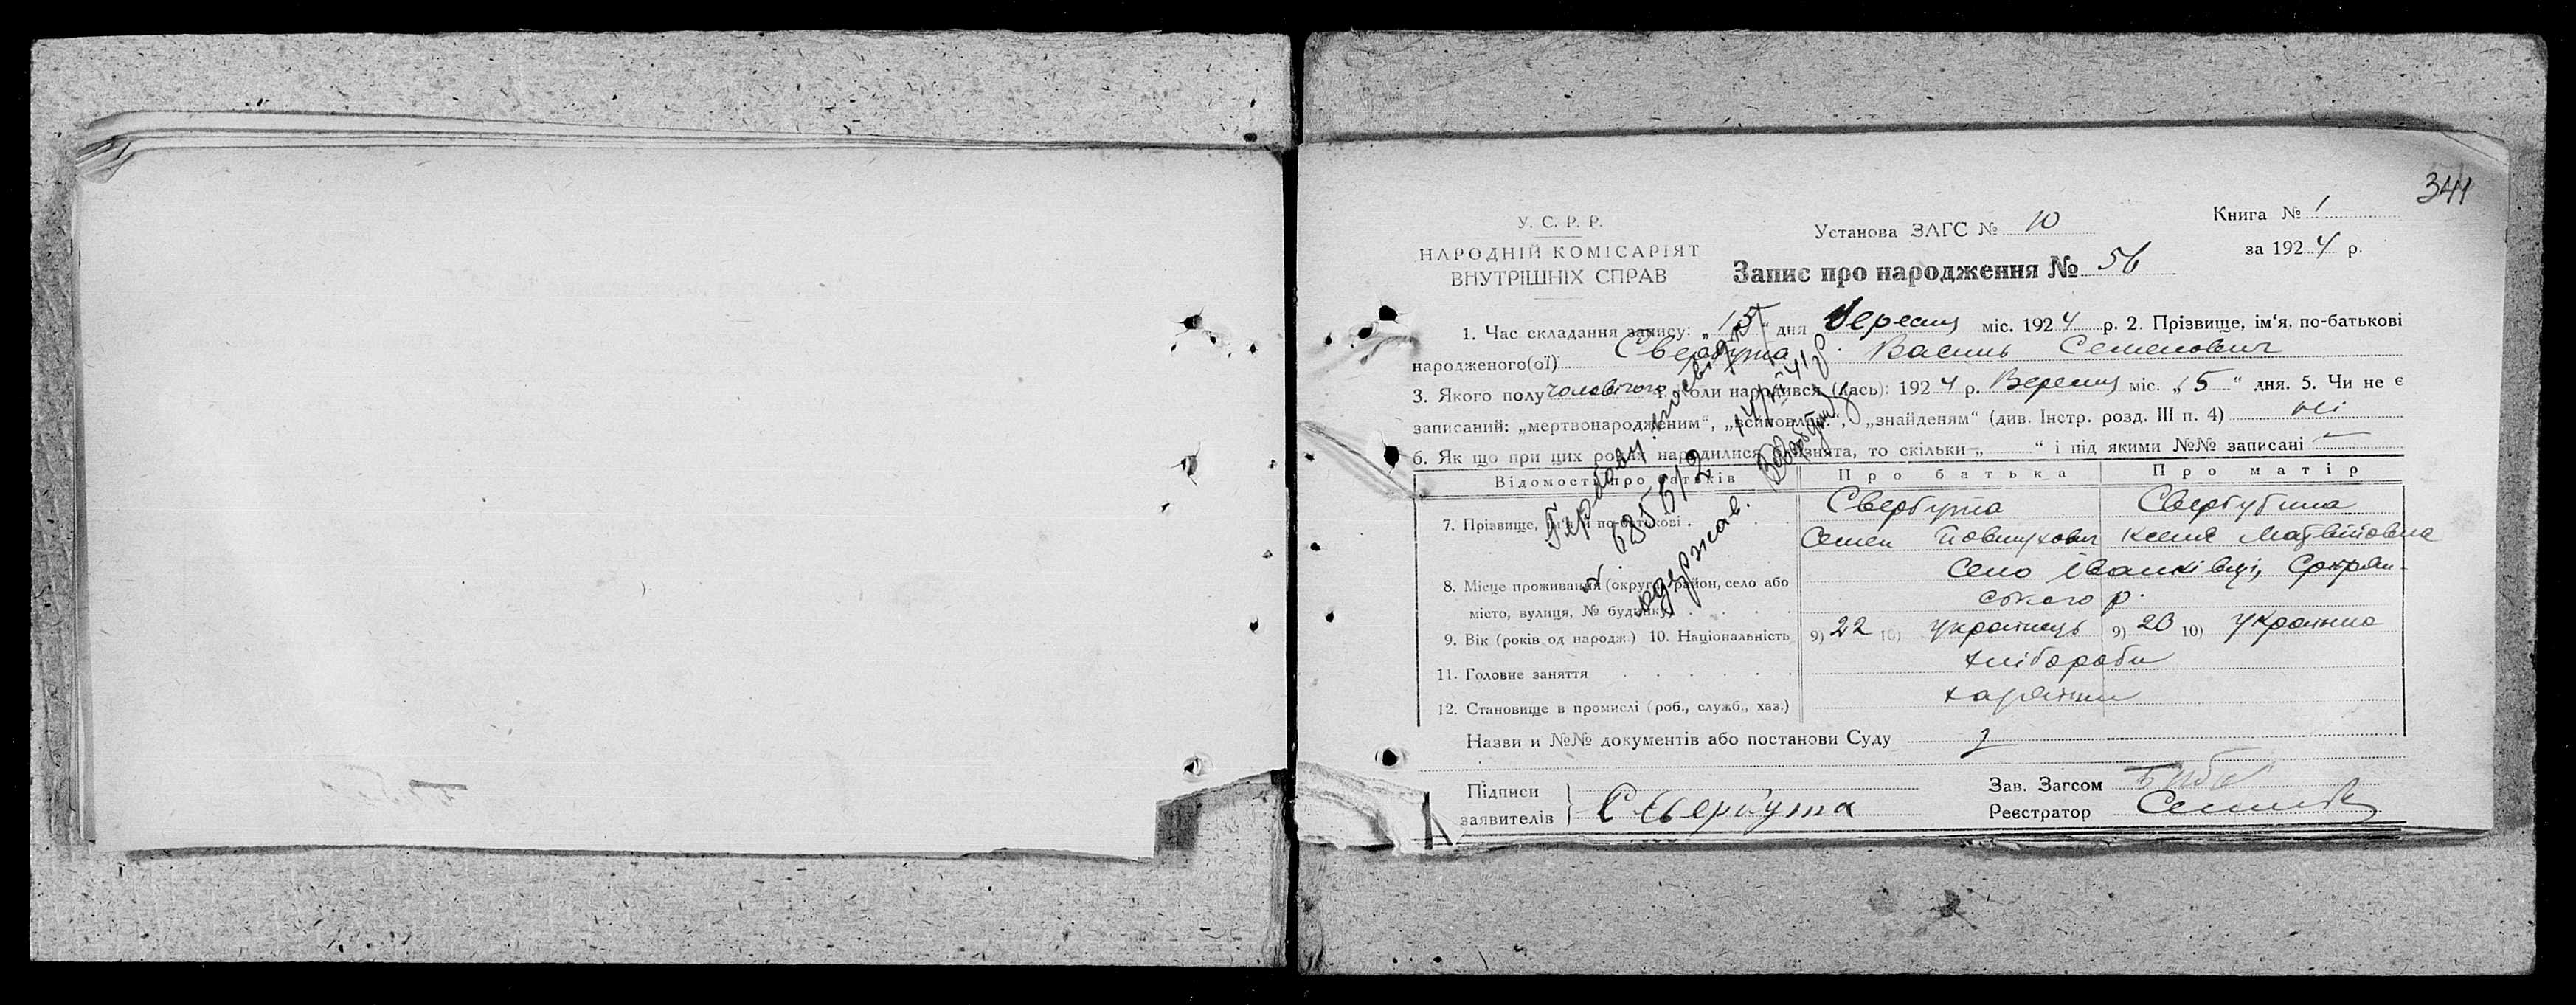 341
У. С. Р. Р.
НАРОДНІЙ КОМІСАРІЯТ
ВНУТРІШНІХ СПРАВ
Установа ЗАГС № 10
Книга № 1
за 1924 р.
Запис про народження № 56
1. Час складання запису: „15“ дня Вересня міс. 1924 р. 2. Прізвище, ім‘я, по-батькові
народженого(ої) Свербута Василь Семенович
3. Якого полу чоловічого 4. Коли народився (лась): 1924 р. Вересня міс. „5“ дня. 5. Чи не є
записаний: „мертвонародженим“, „всиновлен.“, „знайденям“ (див. Інстр. розд. III п. 4) ні
6. Як що при цих родах народилися близнята, то скільки „ “ і під якими №№ записані —
Відомості про батьків Про батька Про матір
7. Прізвище, ім‘я і по-батькові Свербута Свербутина
Семен Ксеня Матвіїовна
8. Місце проживання (округа, район, село або село Іванківці,
місто, вулиця, № будинку) ського р.
9. Вік (років од народж.) 10. Національність 9) 22 10) українець 9) 20 10) українка
11. Головне заняття хлібороби
12. Становище в промислі (роб., служб., хаз.)
Назви и №№ документів або постанови Суду
Підписи
заявителів
Свербута
Зав. Загсом
Реєстратор
одержав.